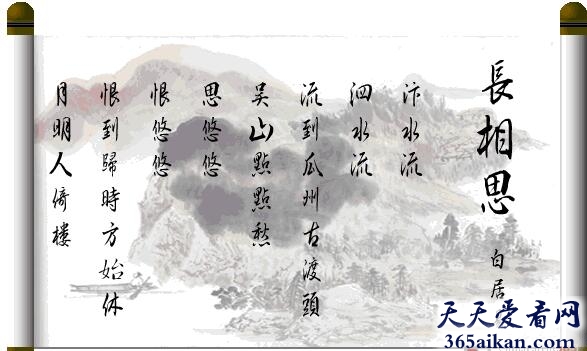 長相思
白居
汴水流
泗水流
流到瓜州古渡頭
吴山點點愁
思悠悠
恨悠悠
恨到歸時方始休
月明人倚楼
天天爱看网
365aikan.com